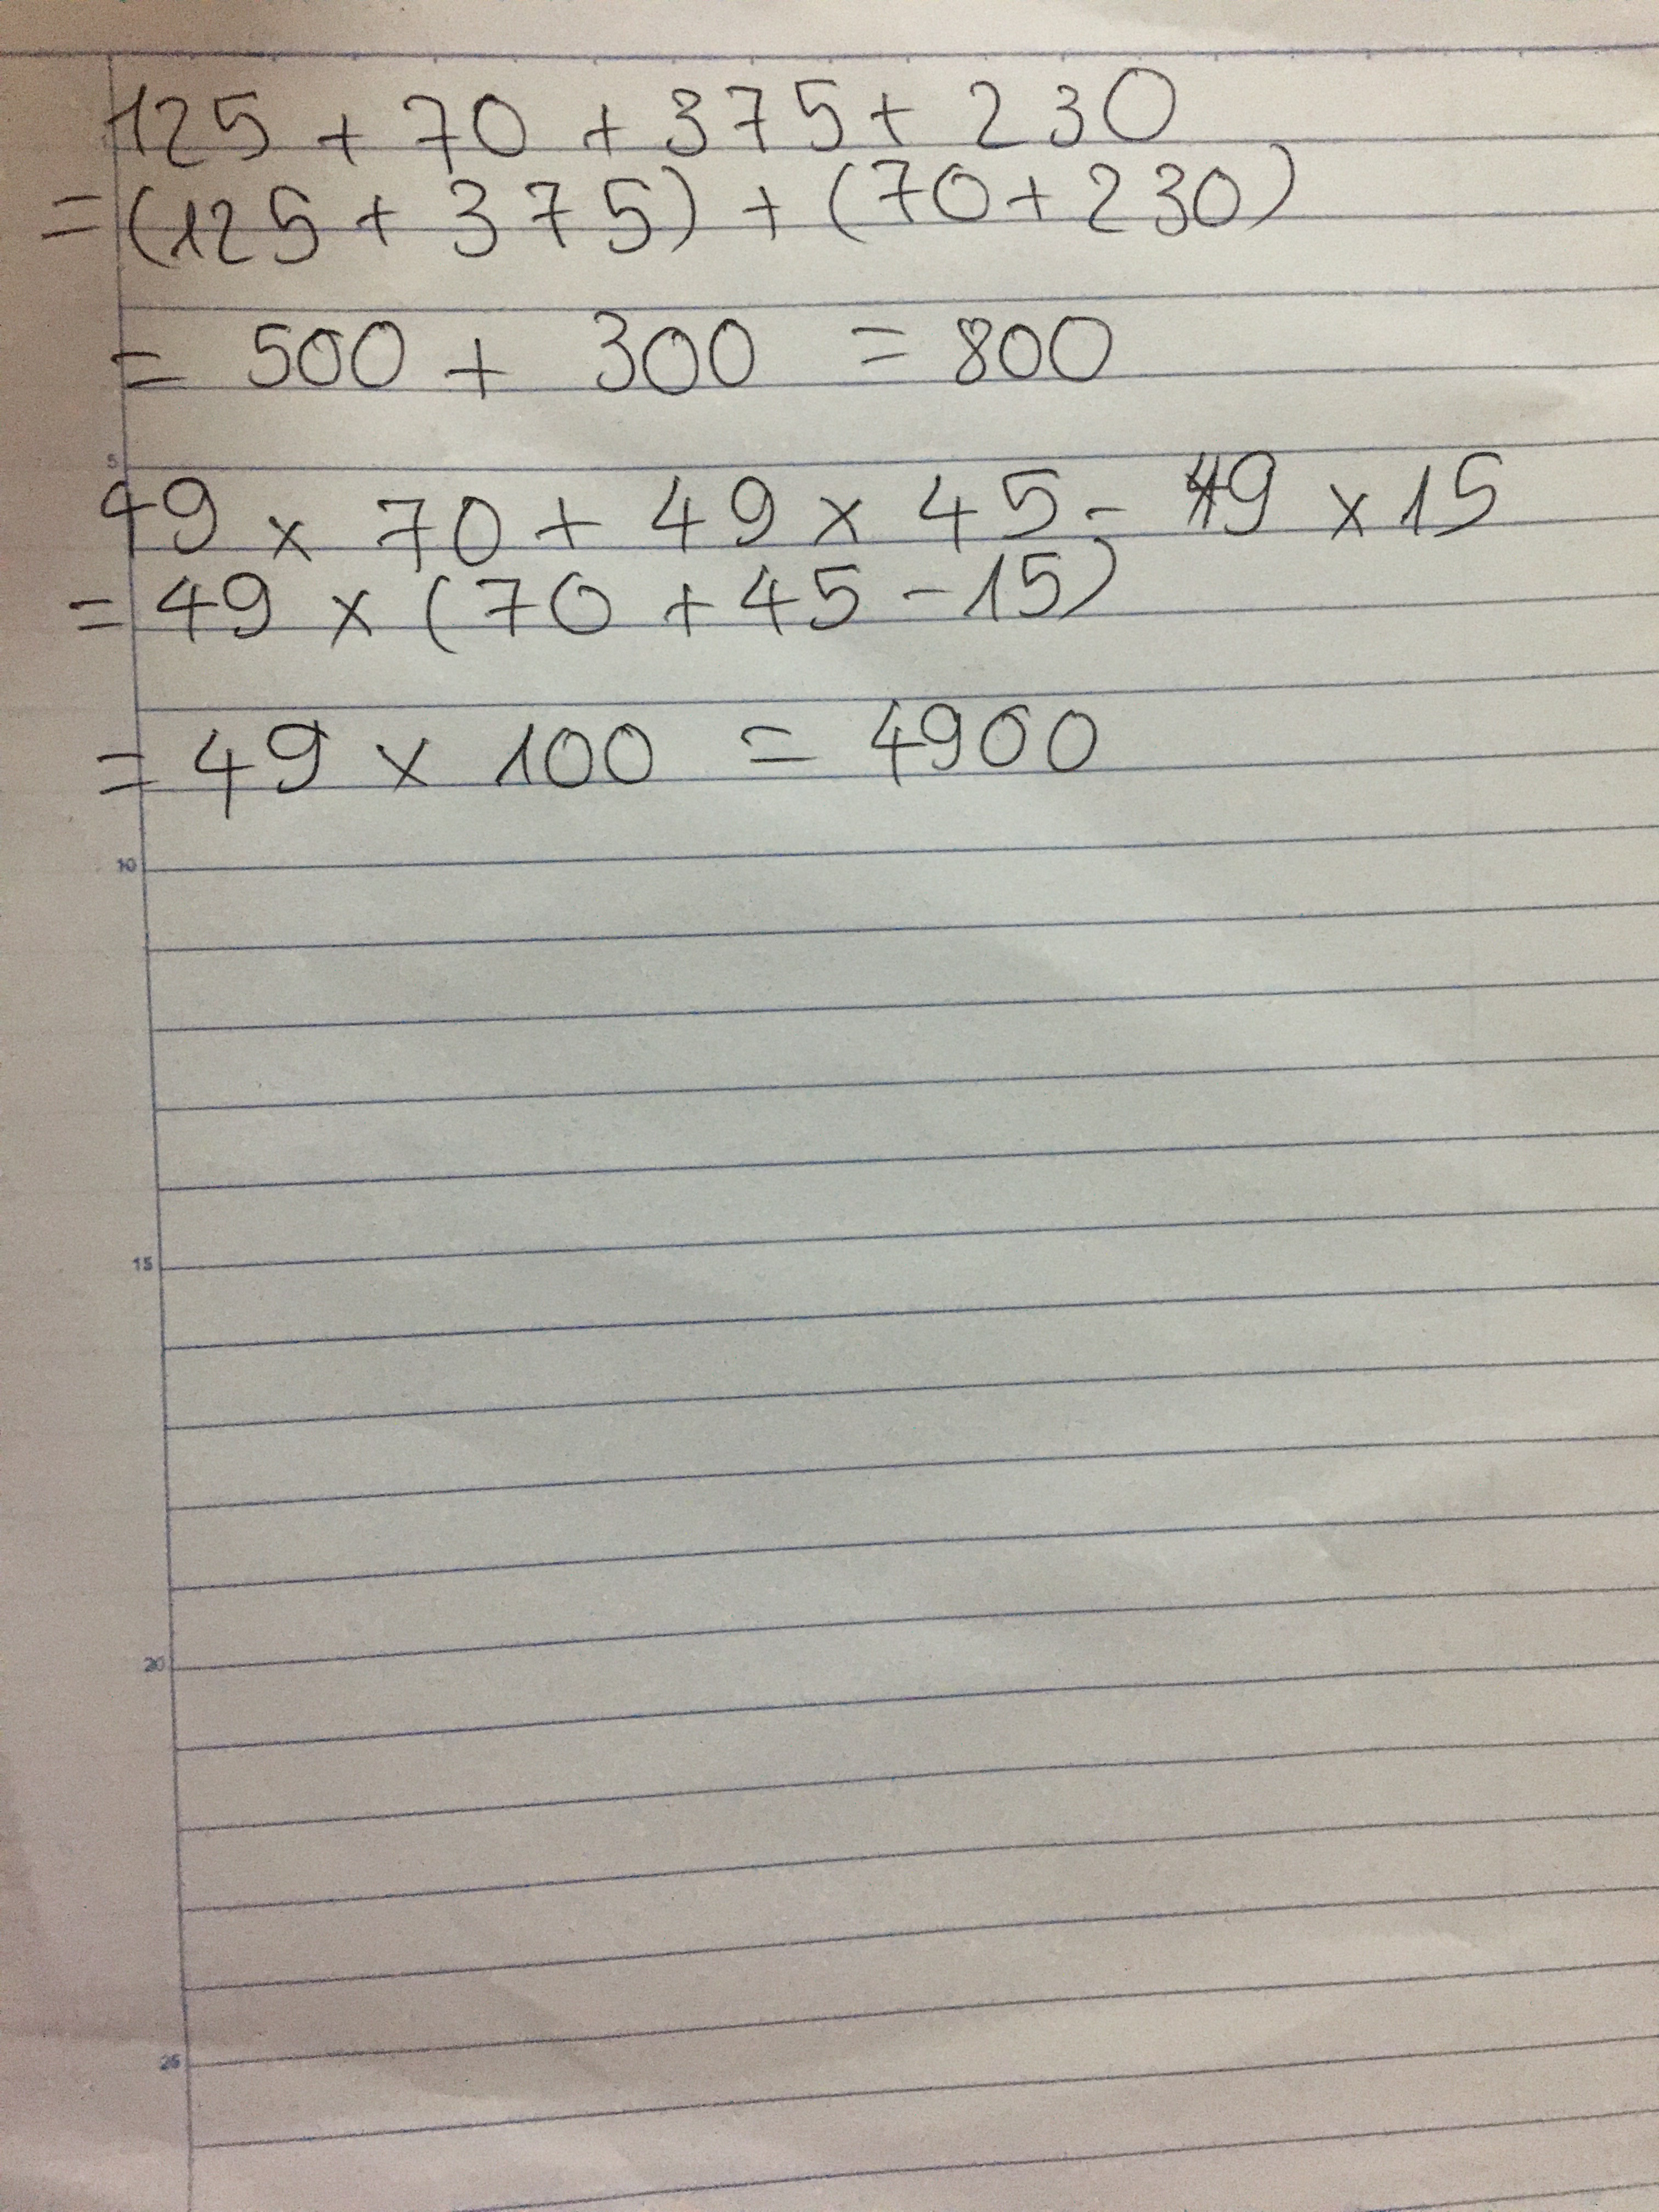 125 + 70 + 375 + 230
= (125 + 375) + (70 + 230)
= 500 + 300 = 800
5
49 x 70 + 49 x 45 - 49 x 15
= 49 x (70 + 45 - 15)
= 49 x 100 = 4900
10
15
20
25